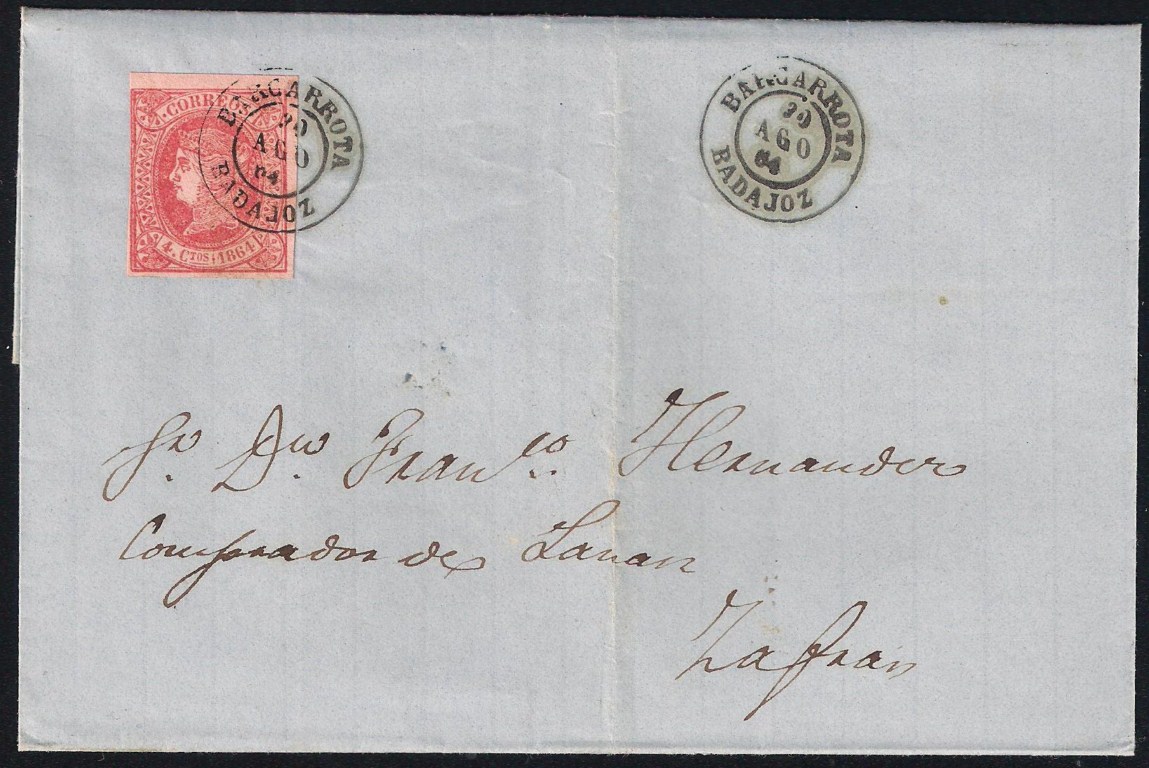 CORREOS
4. CTOS. 1864
BARCARROTA
20
AGO
64
BADAJOZ
BARCARROTA
20
AGO
64
BADAJOZ
Sr. Dn. Franco. Hernandez
Comprador de Lanas
Zafra